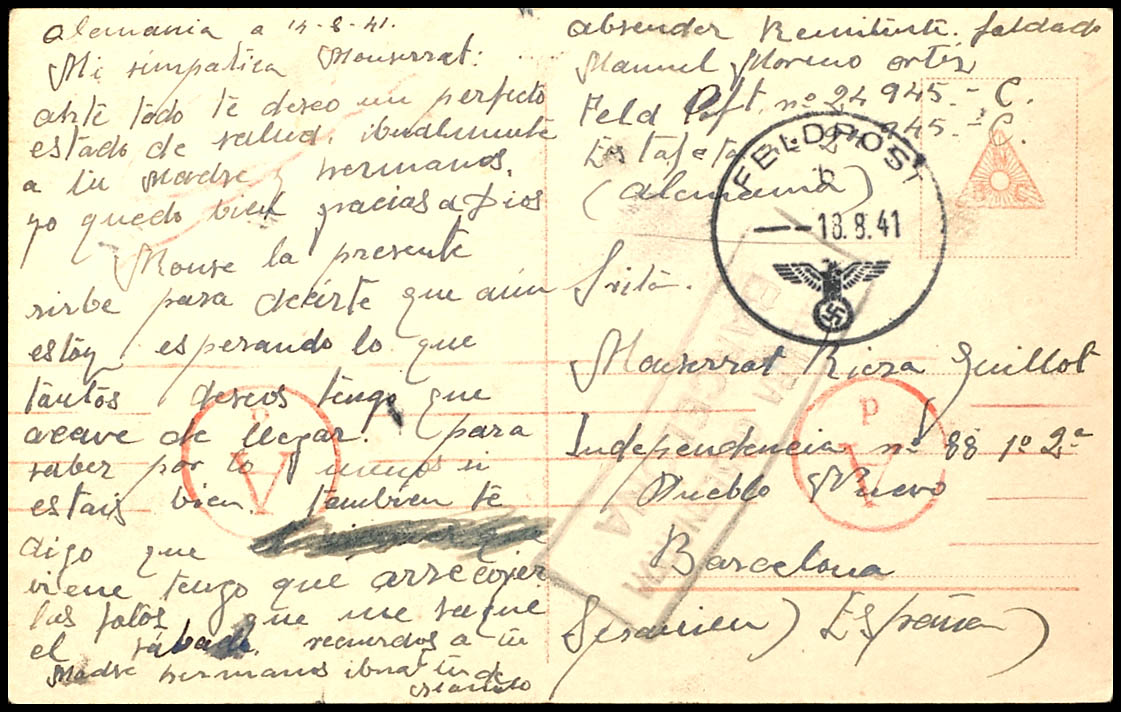 Alemania a 14-8-41.
Mi simpatica Monserrat:
ante todo te deseo un perfecto
estado de salud. ibualmente
a tu Madre y hermanos.
yo quedo bien gracias a Dios
Monse la presente
sirbe para decirte que aún
estoy esperando lo que
tantos deseos tengo que
acave de llegar. para
saber por lo menos si
estais bien. tambien te
digo que
viene tengo que arrecojer
las fotos que me saque
el sábado. recuerdos a tu
Madre hermanos ibual tu de
Manolo
Absender Remitente. soldado
Manuel Moreno ortiz
Feld Post nº 24945.- C.
Estafeta 24945.- C.
(Alemania)
FELDPOST
b
--18.8.41
Srita.
Monserrat Riera Guillot
Independencia nº 88 1º 2ª
Pueblo Nuevo
Barcelona
Spanien) España)
p
A
p
A
CENSURA MILITAR
BARCELONA